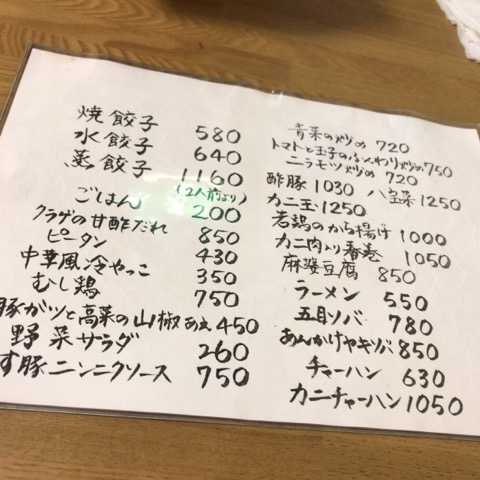 焼餃子 580
水餃子 640
蒸餃子 1160
(2人前より)
ごはん 200
クラゲの甘酢だれ 850
ピータン 430
中華風冷やっこ 350
むし鶏 750
豚ガツと高菜の山椒あえ 450
野菜サラダ 260
す豚ニンニクソース 750
青菜の炒め 720
トマトと玉子のふんわり炒め 750
ニラモツ炒め 720
酢豚 1030 八宝菜 1250
カニ玉 1250
若鶏のから揚げ 1000
カニ肉入り春巻 1050
麻婆豆腐 850
ラーメン 550
五目ソバ 780
あんかけヤキソバ 850
チャーハン 630
カニチャーハン 1050